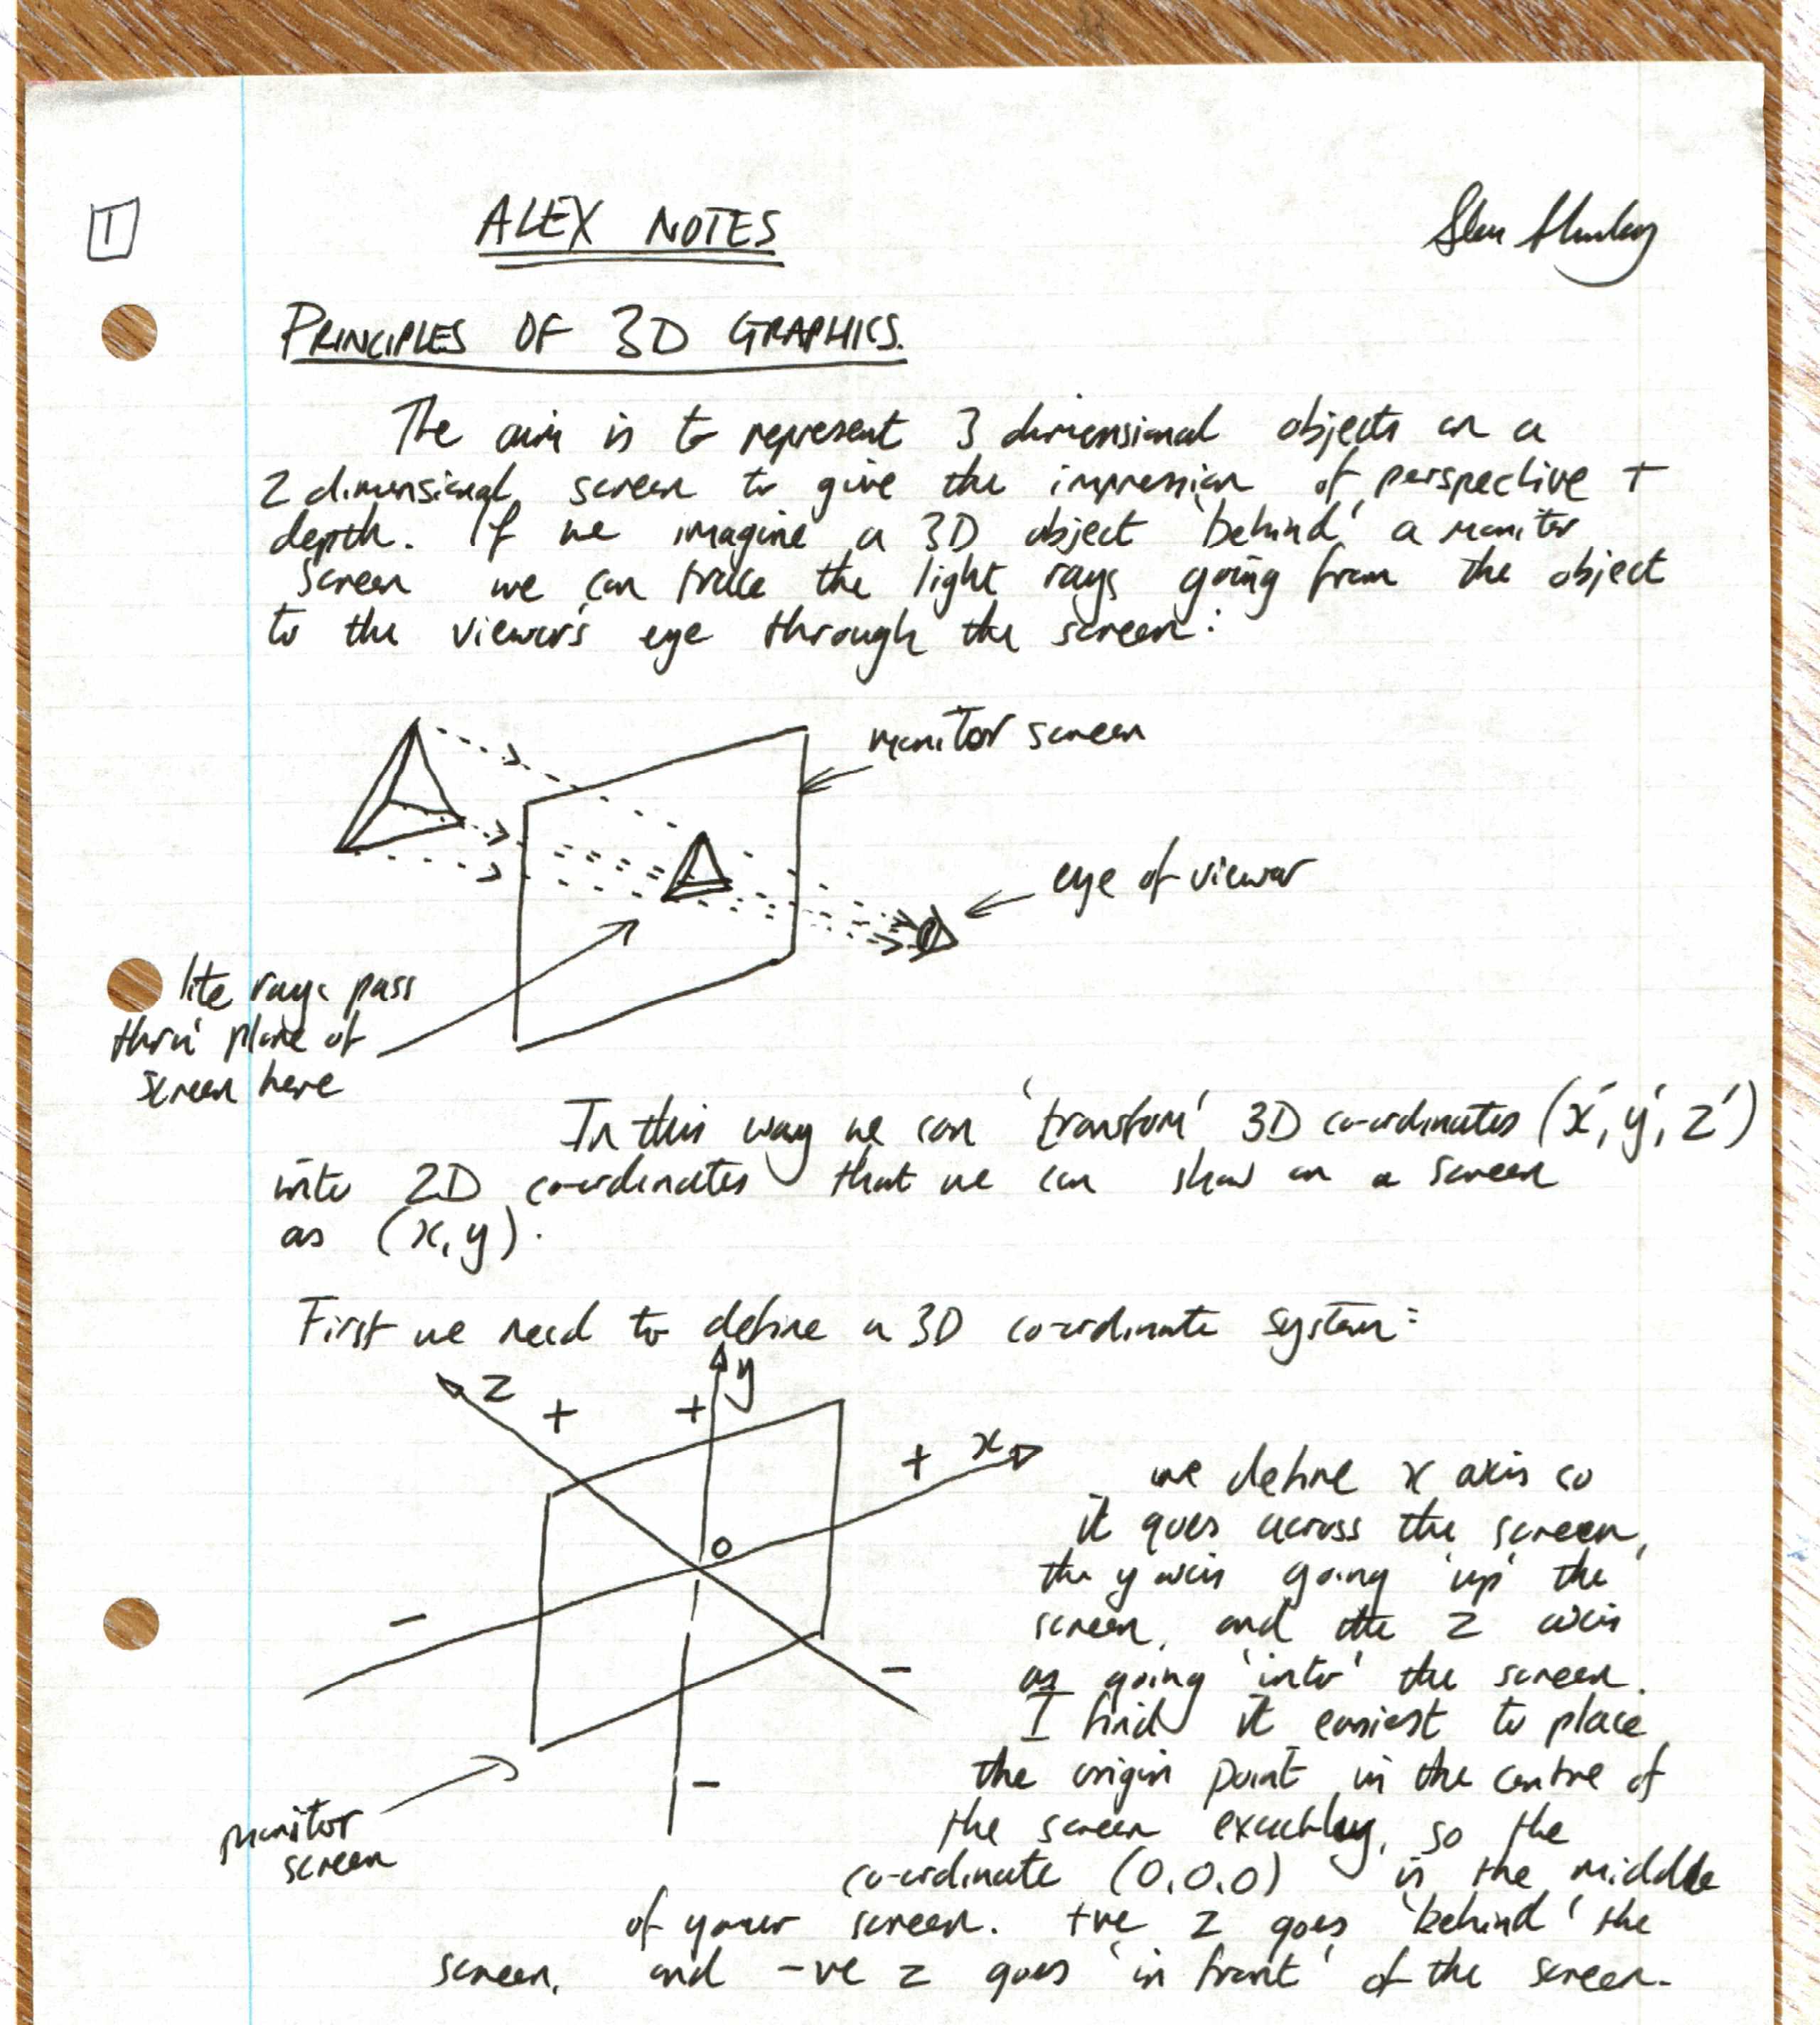 1
ALEX NOTES
PRINCIPLES OF 3D GRAPHICS.
The aim is to represent 3 dimensional objects on a
2 dimensional screen to give the impression of perspective +
depth. If we imagine a 3D object 'behind' a monitor
screen we can trace the light rays going from the object
to the viewer's eye through the screen:
monitor screen
eye of viewer
lite rays pass
thru' plane of
screen here
In this way we can 'transform' 3D co-ordinates (x', y', z')
into 2D co-ordinates that we can show on a screen
as (x, y).
First we need to define a 3D co-ordinate system:
z + + y
+ x
O
-
-
-
monitor
screen
we define x axis so
it goes across the screen,
the y axis going 'up' the
screen, and the z axis
as going 'into' the screen.
I find it easiest to place
the origin point in the centre of
the screen exactly, so the
co-ordinate (0,0,0) is the middle
of your screen. +ve z goes 'behind' the
screen, and -ve z goes 'in front' of the screen.